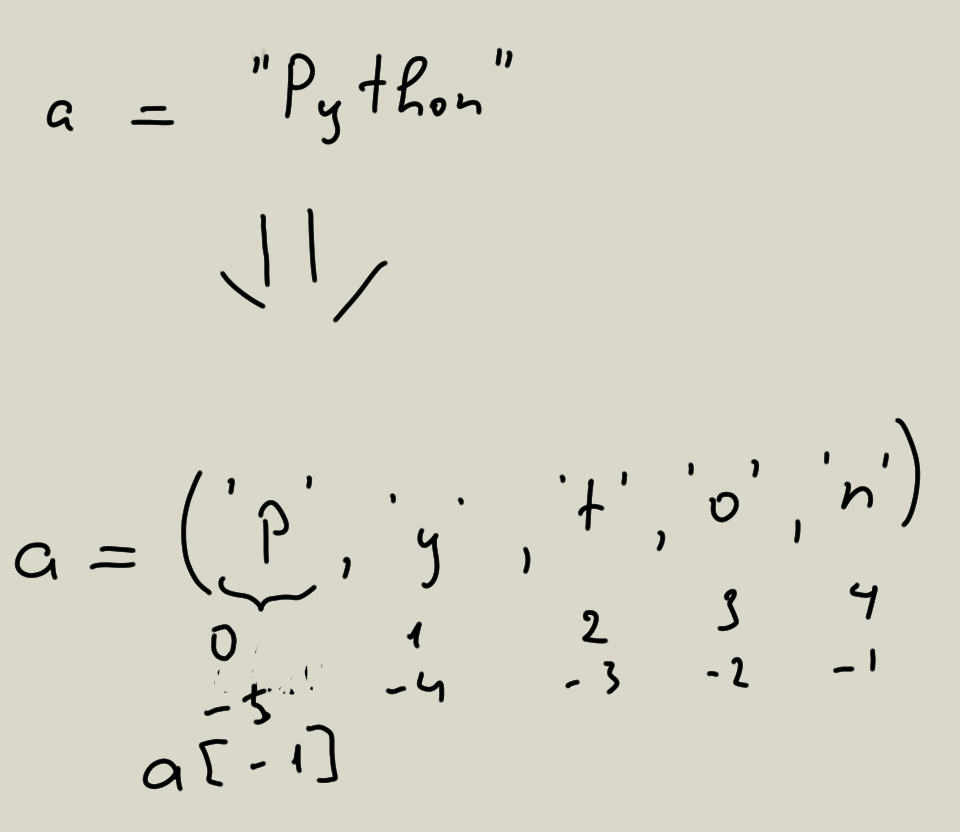 a = "Python"
a = ('P', 'y', 't', 'o', 'n')
0 1 2 3 4
-5 -4 -3 -2 -1
a[-1]